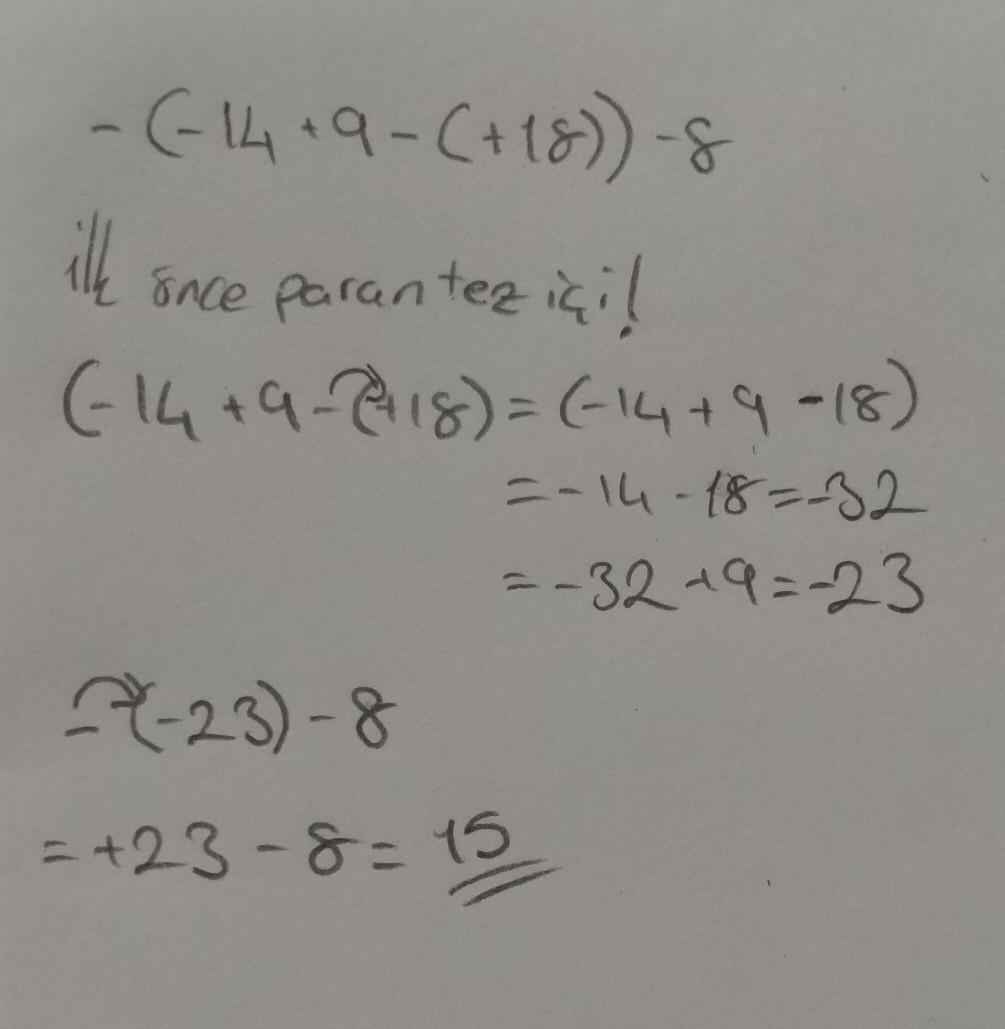 -(-14+9-(+18))-8
ilk önce parantez içi!
(-14+9-(+18)=(-14+9-18)
=-14-18=-32
=-32+9=-23
-(-23)-8
=+23-8=15